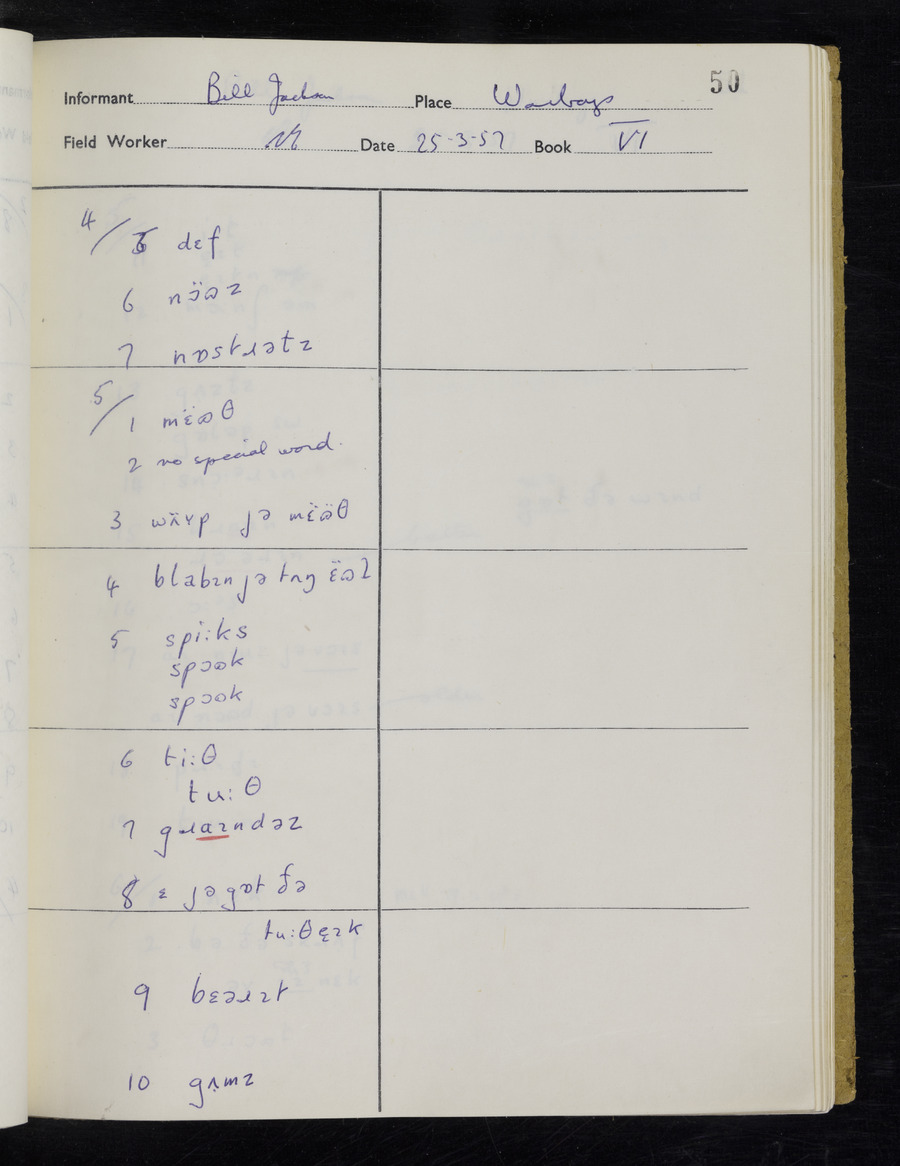 50
Informant Bill Jackson Place Warboys
Field Worker Date 25-3-57 Book VI
4/5 dɛf
6 nɔ̈ʊz
7 nɒstɹətz
5/1 mɛ̈ʊθ
2 no special word.
3 jə mɛ̈ʊ̈θ
4 blabɪn jə tʌŋ ɛ̈ʊl
5 spi:ks
spɔʊk
spɔʊk
6 ti:θ
tu:θ
7 gɹaɪndəz
8 ɛ jəgɒt ðə
tu:θɛ̨ɪk
9 bɛəɹɪt
10 gʌ̣mz